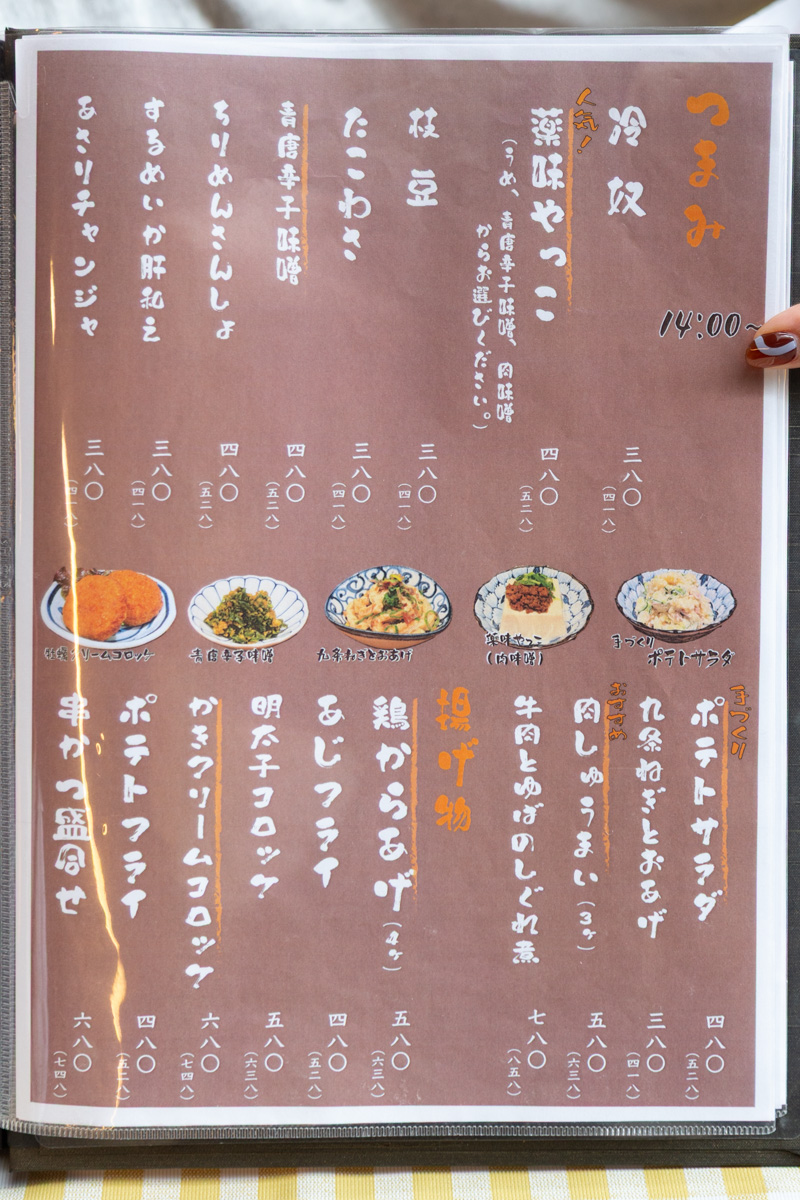 つまみ
14:00~
冷奴
三八〇
(四一八)
人気!
薬味やっこ
(うめ、青唐辛子味噌、肉味噌
からお選びください。)
四八〇
(五二八)
枝豆
三八〇
(四一八)
たこわさ
三八〇
(四一八)
青唐辛子味噌
四八〇
(五二八)
ちりめんさんしょ
四八〇
(五二八)
するめいか肝和え
三八〇
(四一八)
あさりチャンジャ
三八〇
(四一八)
手づくり
ポテトサラダ
薬味やっこ
(肉味噌)
九条ねぎとおあげ
青唐辛子味噌
牡蠣クリームコロッケ
手づくり
ポテトサラダ
四八〇
(五二八)
九条ねぎとおあげ
三八〇
(四一八)
おすすめ
肉しゅうまい(3ヶ)
五八〇
(六三八)
牛肉とゆばのしぐれ煮
七八〇
(八五八)
揚げ物
鶏からあげ(4ヶ)
五八〇
(六三八)
あじフライ
四八〇
(五二八)
明太子コロッケ
五八〇
(六三八)
かきクリームコロッケ
六八〇
(七四八)
ポテトフライ
四八〇
(五二八)
串かつ盛合せ
六八〇
(七四八)